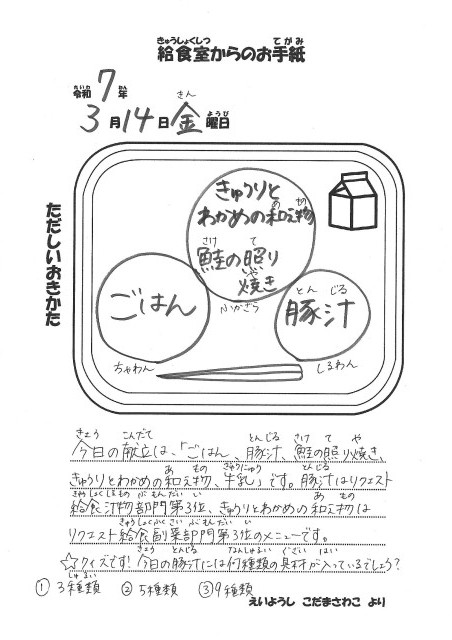 給食室からのお手紙
令和7年
3月14日金曜日
ただしいおきかた
きゅうりと
わかめの和え物
鮭の照り
焼き
ふかざら
ごはん
ちゃわん
豚汁
しるわん
今日の献立は、「ごはん、豚汁、鮭の照り焼き、
きゅうりとわかめの和え物、牛乳」です。豚汁はリクエスト
給食汁物部門第3位、きゅうりとわかめの和え物は
リクエスト給食副菜部門第3位のメニューです。
☆クイズです!今日の豚汁には何種類の具材が入っているでしょう?
①3種類 ②5種類 ③9種類
えいようし こだまさわこ より